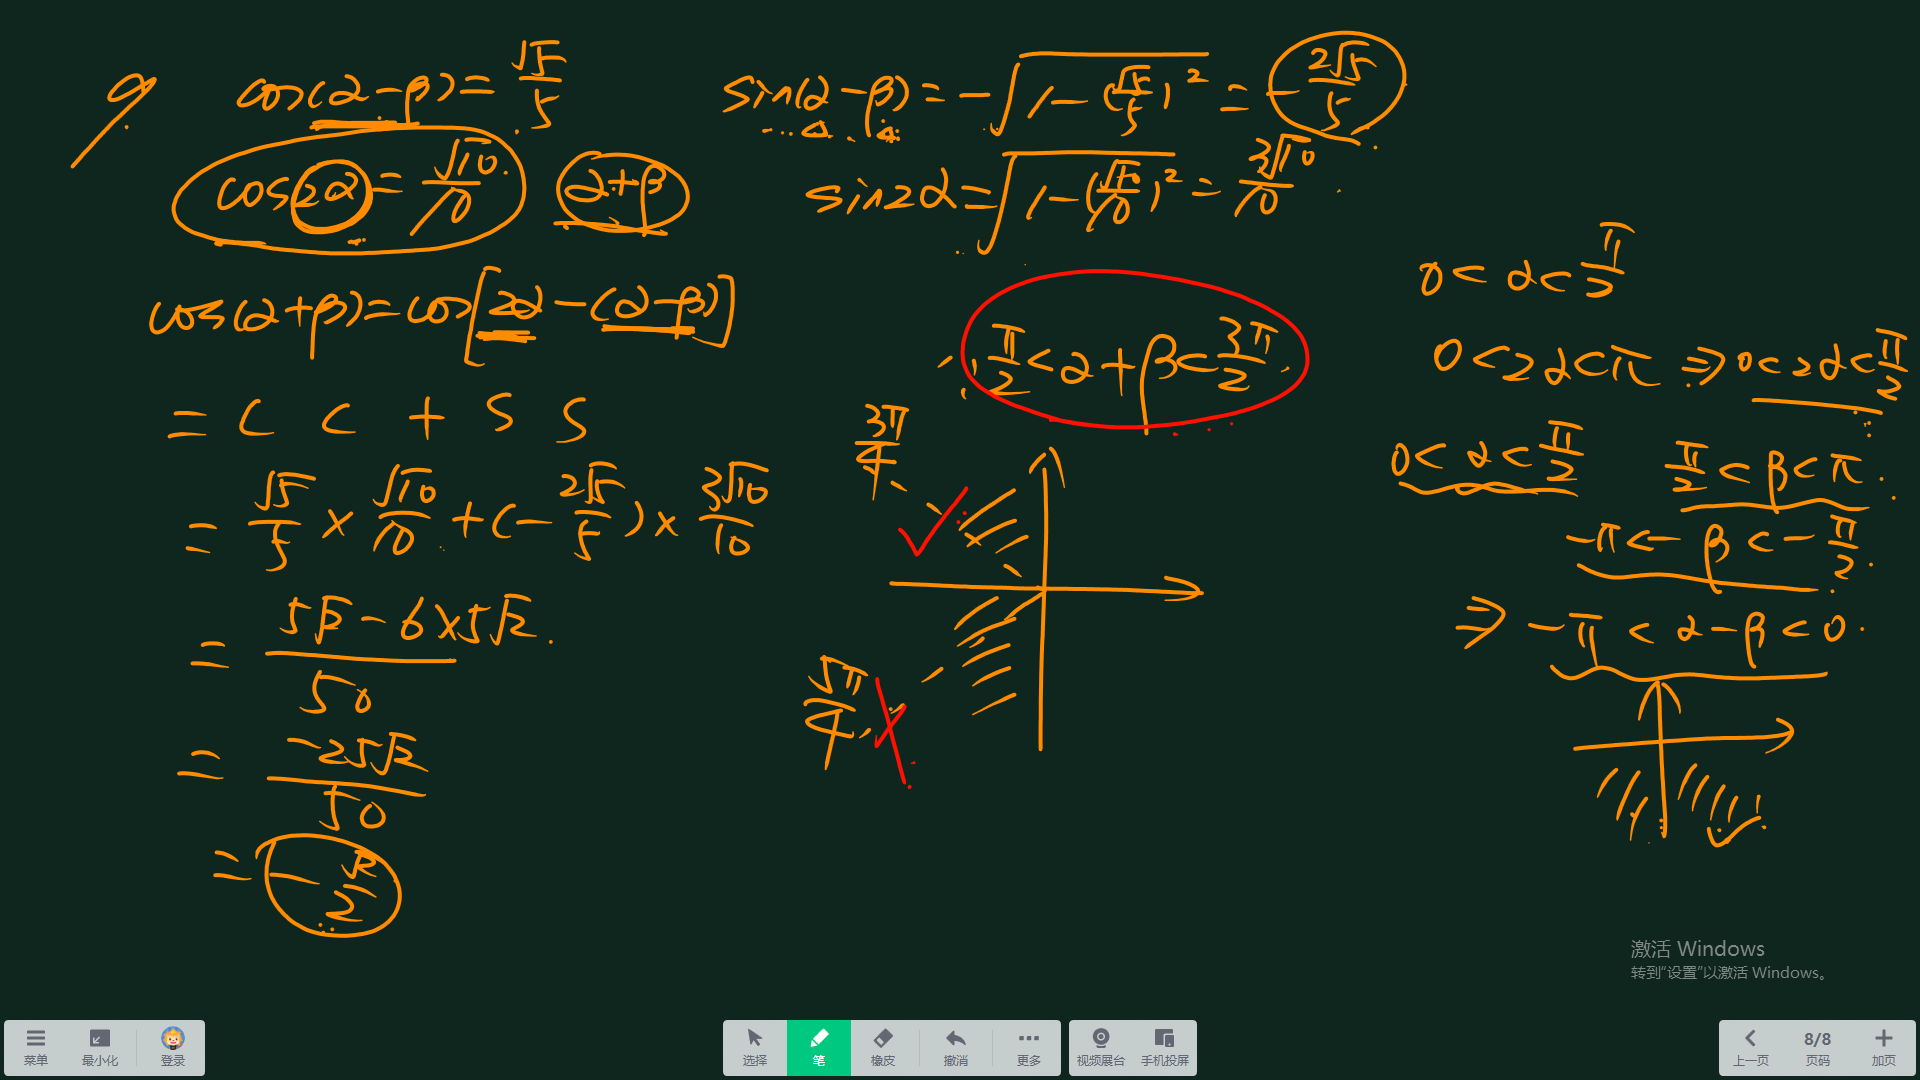 9 cos(α-β)=√5/5
cos2α=√10/10 α+β
cos(α+β)=cos[2α-(α-β)]
= C C + S S
= √5/5 × √10/10 + (-2√5/5) × 3√10/10
= (5√2-6×5√2)/50
= -25√2/50
= -√2/2
sin(α-β)=-√(1-(√5/5)²)=-2√5/5
sin2α=√(1-(√10/10)²)=3√10/10
π/2<α+β<3π/2
3π/4
5π/4
0<α<π/2
0<2α<π ⇒ 0<2α<π/2
0<α<π/2 π/2<β<π
-π<-β<-π/2
⇒ -π<α-β<0
激活 Windows
转到“设置”以激活 Windows。
菜单 最小化 登录 选择 笔 橡皮 撤消 更多 视频展台 手机投屏 上一页 8/8 页码 加页